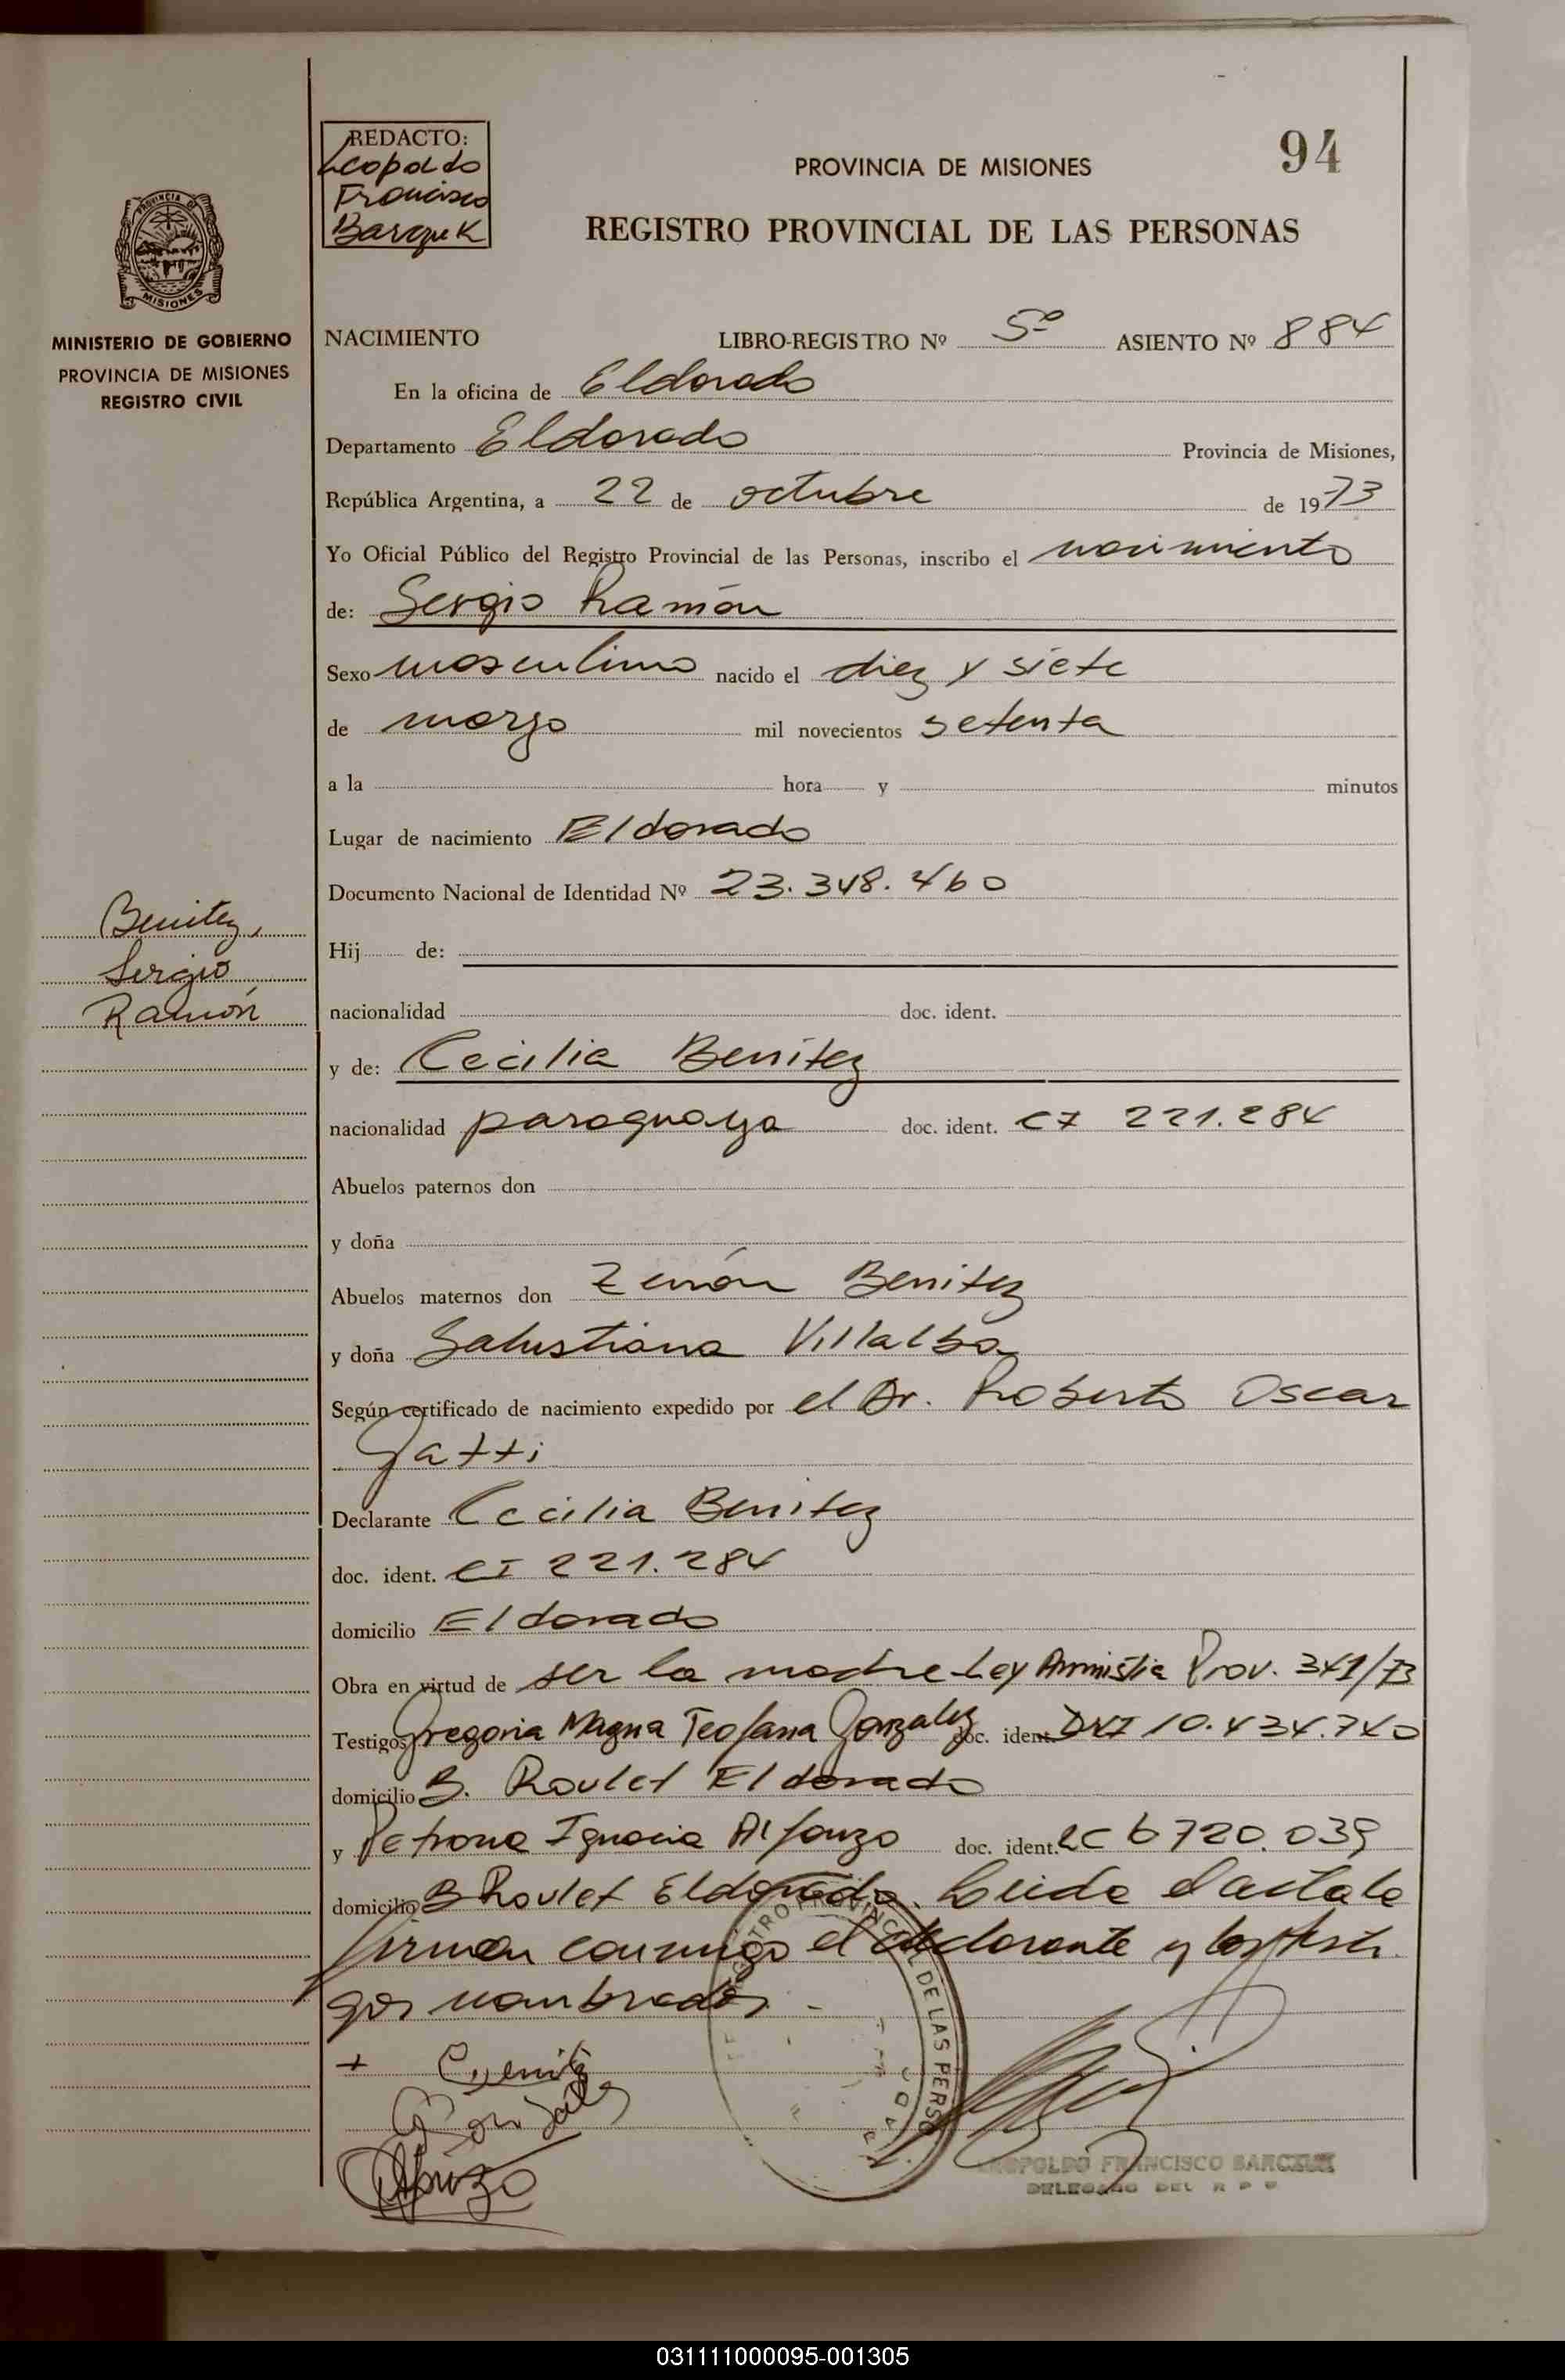 94
REDACTO:
Leopoldo
Francisco
PROVINCIA DE MISIONES
REGISTRO PROVINCIAL DE LAS PERSONAS
PROVINCIA DE
MISIONES
MINISTERIO DE GOBIERNO
PROVINCIA DE MISIONES
REGISTRO CIVIL
Benitez,
Sergio
Ramón
NACIMIENTO LIBRO-REGISTRO Nº 5º ASIENTO Nº 884
En la oficina de Eldorado
Departamento Eldorado Provincia de Misiones,
República Argentina, a 22 de octubre de 1973
Yo Oficial Público del Registro Provincial de las Personas, inscribo el nacimiento
de: Sergio Ramón
Sexo masculino nacido el diez y siete
de marzo mil novecientos setenta
a la hora y minutos
Lugar de nacimiento Eldorado
Documento Nacional de Identidad Nº 23.348.460
Hij de:
nacionalidad doc. ident.
y de: Cecilia Benitez
nacionalidad paraguaya doc. ident. CI 221.284
Abuelos paternos don
y doña
Abuelos maternos don Zenón Benitez
y doña Salustiana Villalba
Según certificado de nacimiento expedido por el Dr. Roberto Oscar
Gatti
Declarante Cecilia Benitez
doc. ident. CI 221.284
domicilio Eldorado
Obra en virtud de ser la madre Ley Amnistia Prov. 341/73
Testigos Gregoria Magna Teofana Gonzalez doc. ident. DNI 10.434.740
domicilio B. Roulet Eldorado
y Petrona Ignacia Alfonzo doc. ident. LC 6720.039
domicilio B Roulet Eldorado. Leida el acta la
firman conmigo el declarante y los testi
gos nombrados -
+ C Benitez
G Gonzalez
Alfonzo
REGISTRO PROVINCIAL DE LAS PERSO
LEOPOLDO FRANCISCO
DELEGADO DEL R P P
031111000095-001305